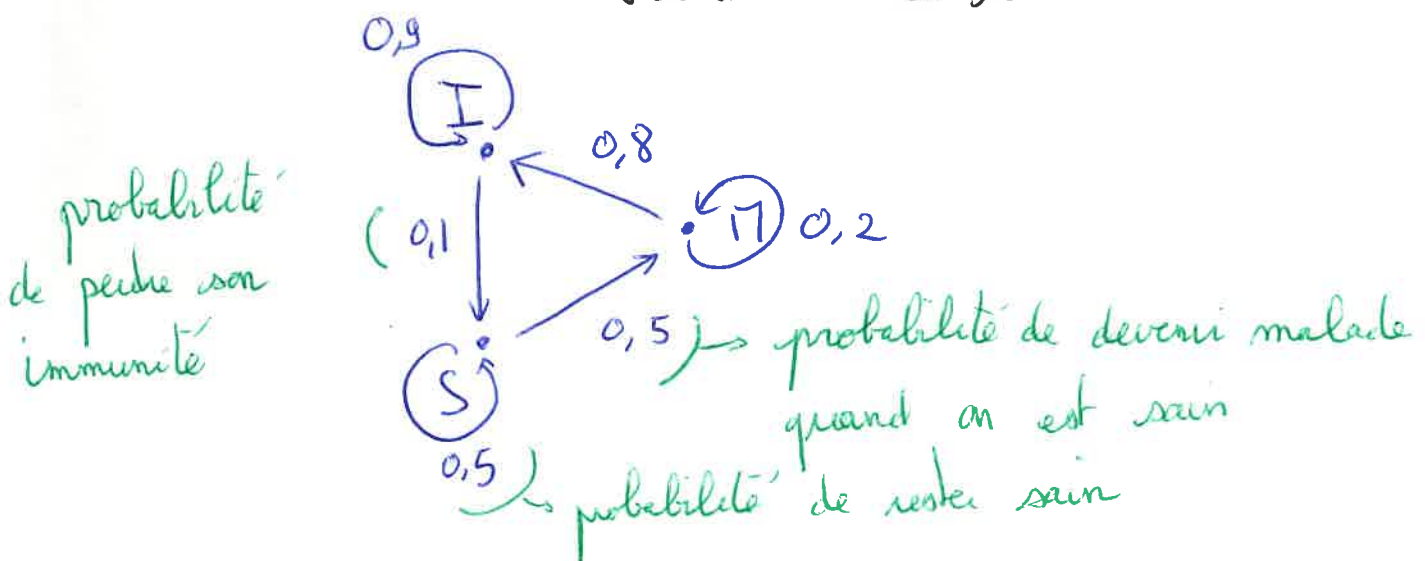 0,9
I
0,8
probabilité
de perdre son
immunité
( 0,1
M 0,2
0,5 ) → probabilité de devenir malade
quand on est sain
S
0,5 ) → probabilité de rester sain